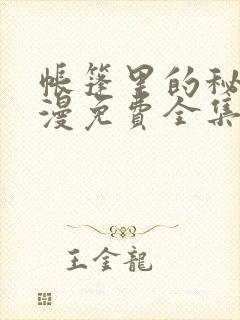 帐篷里的秘
漫免费全集
王金龍